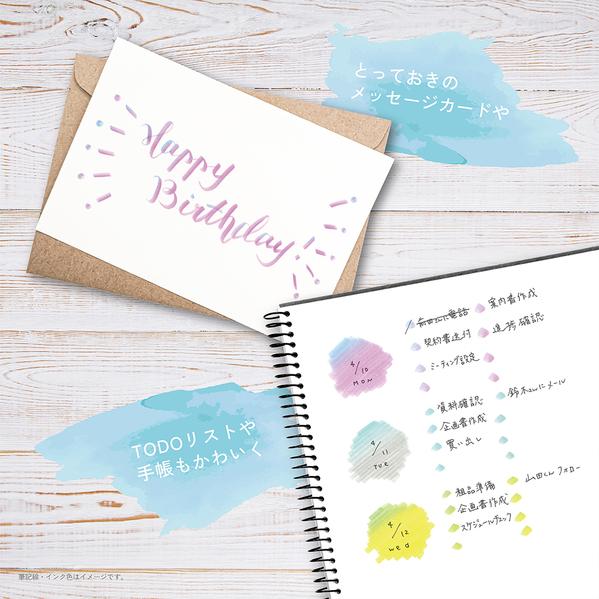 とっておきの
メッセージカードや
Happy
Birthday!
4/10
MON
契約書送付
ミーティング設定
案内書作成
進捗確認
4/11
TUE
資料確認
企画書作成
買い出し
鈴木さんにメール
4/12
wed
粗品準備
企画書作成
スケジュールチェック
山田くんフォロー
TODOリストや
手帳もかわいく
筆記線・インク色はイメージです。